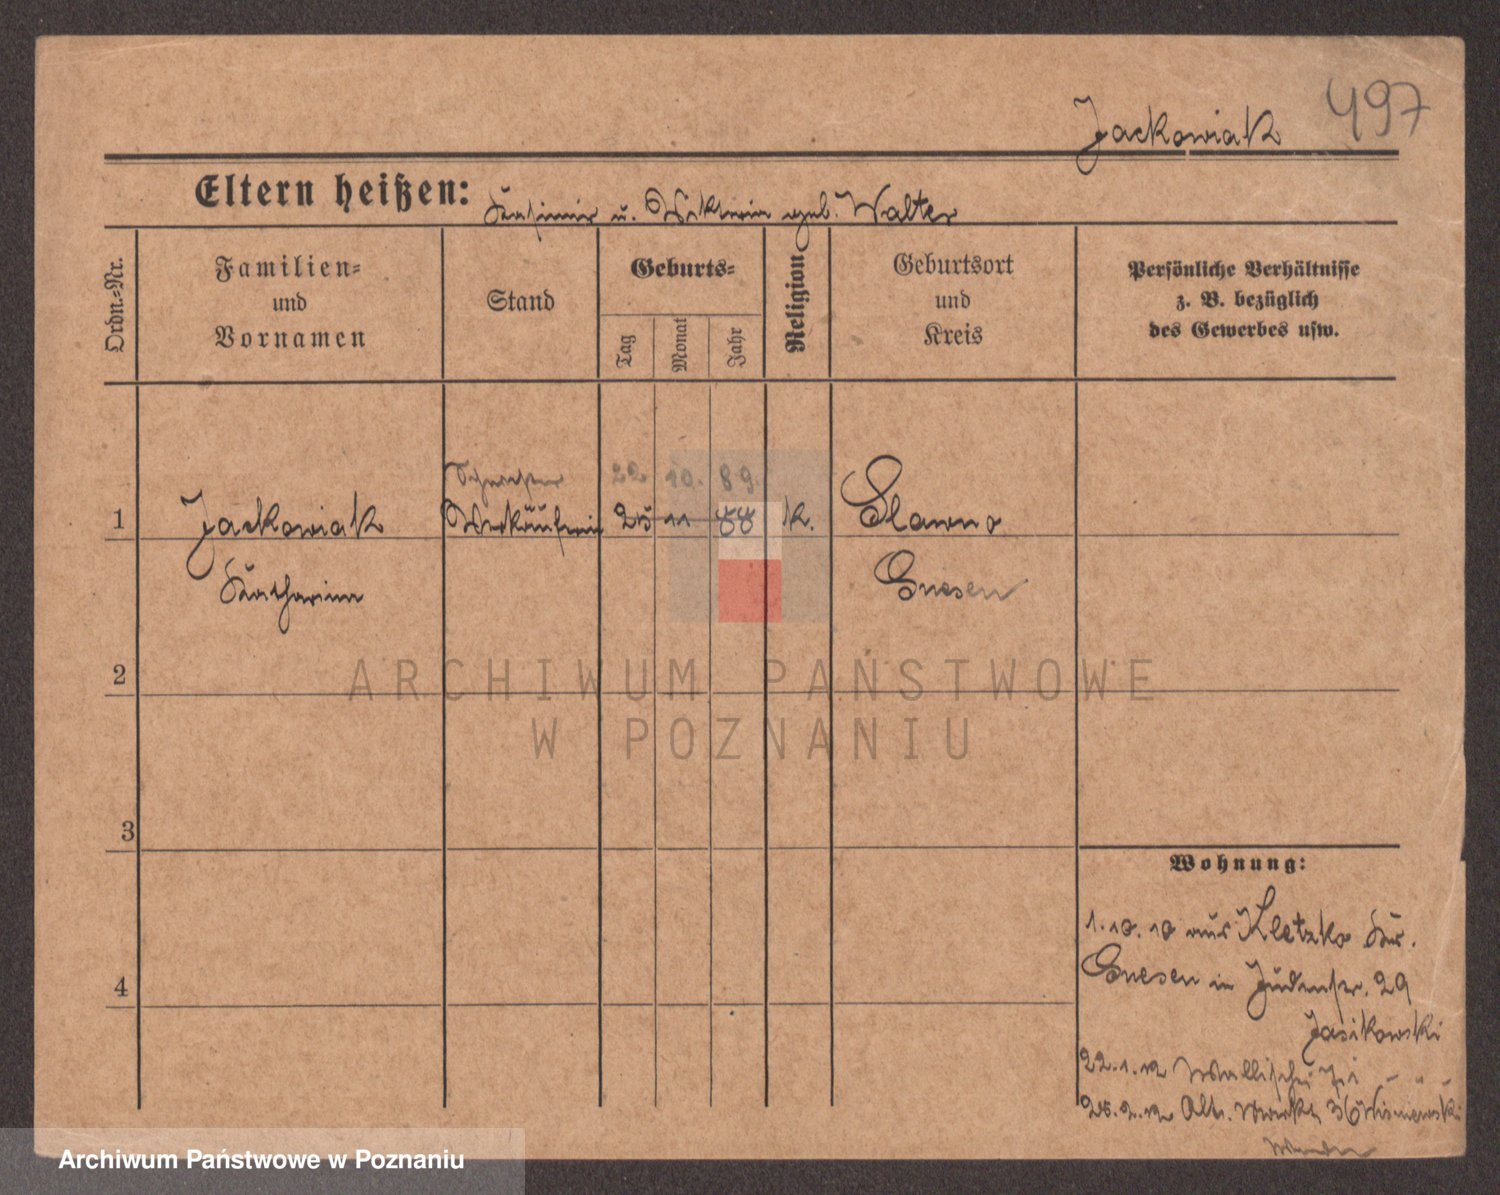 497
Jackowiak
Eltern heißen: Kasimir u. Viktoria geb. Walter
Ordn.-Nr.
Familien-
und
Vornamen
Stand
Geburts-
Tag
Monat
Jahr
Religion
Geburtsort
und
Kreis
Persönliche Verhältnisse
z. B. bezüglich
des Gewerbes usw.
22. 10. 89.
1 Jackowiak Verkäuferin 25 11 88 k. Slawno
Katharina Gnesen
2
ARCHIWUM PAŃSTWOWE
W POZNANIU
3
4
Wohnung:
1.10.10 aus Kletzko Kr.
Gnesen in Judenstr. 29
Jasikowski
22.1.12 Wallischei
25.2.12 Alt. Markt 36 Wisniewski
Archiwum Państwowe w Poznaniu